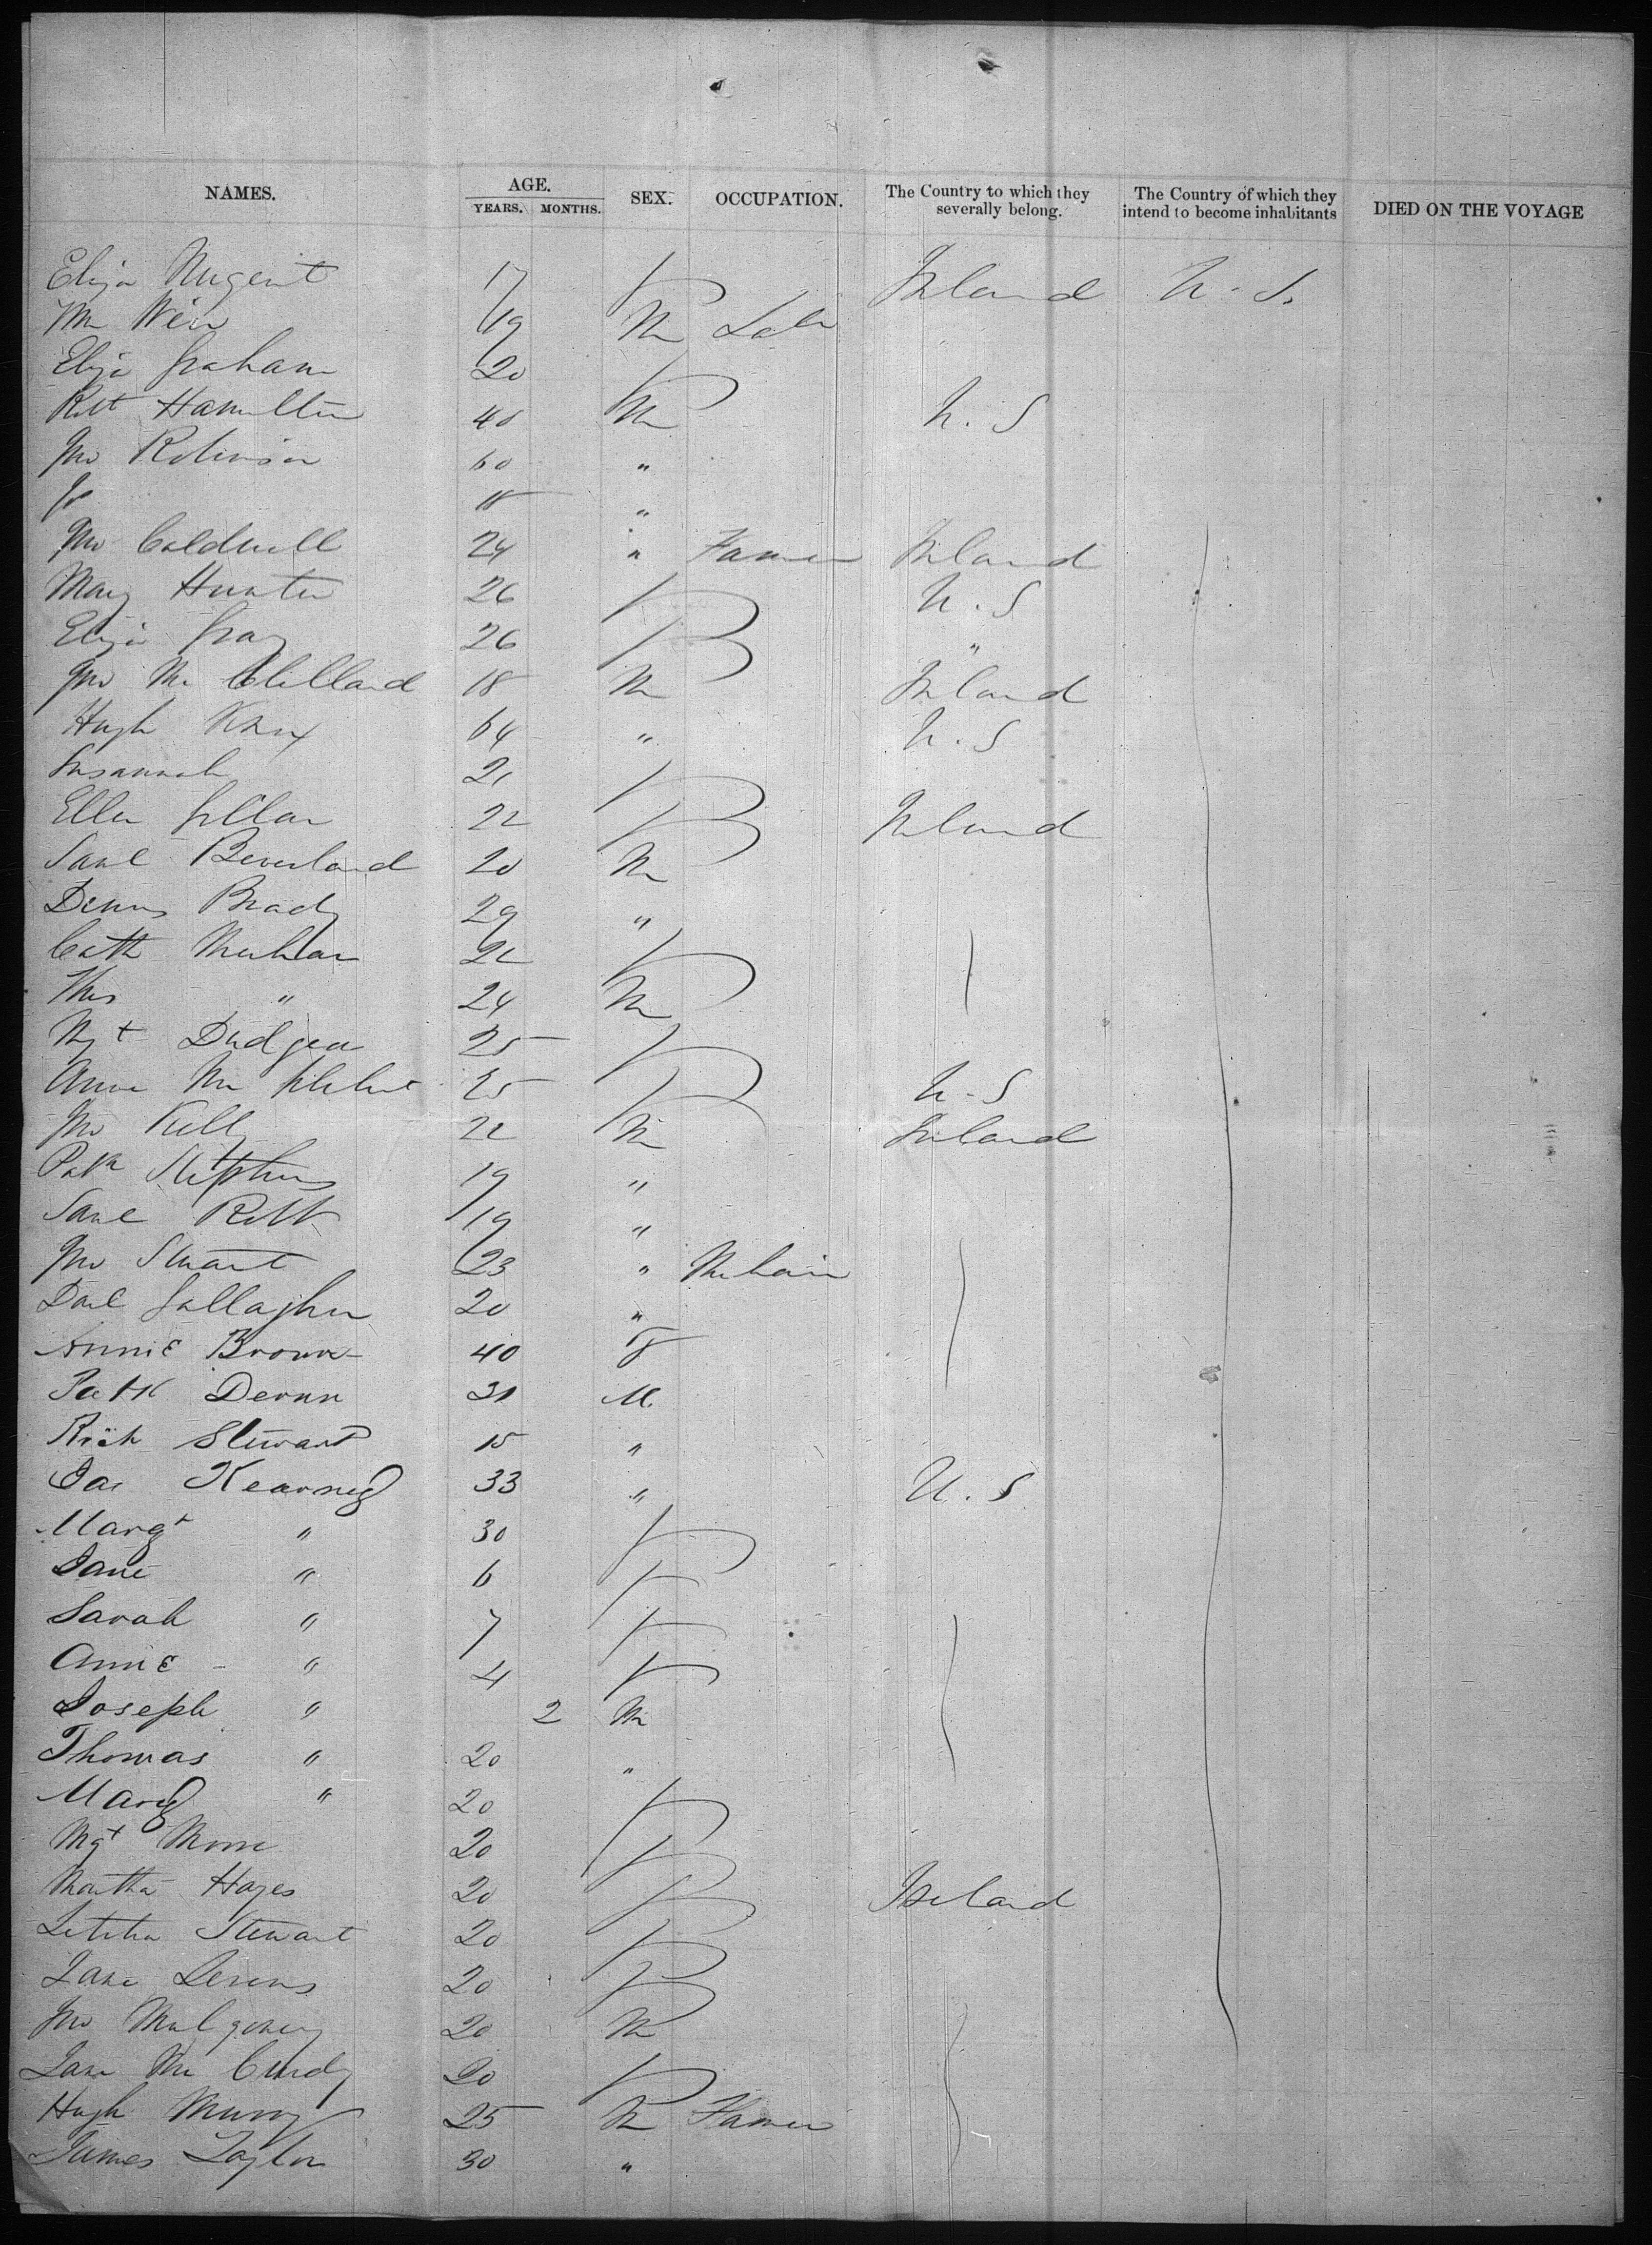 NAMES. AGE. YEARS. MONTHS. SEX. OCCUPATION. The Country to which they severally belong. The Country of which they intend to become inhabitants DIED ON THE VOYAGE
Eliza Nugent 17 F Ireland U. S.
Wm Weir 19 M Labr
Eliza Graham 20 F
Robt Hamilton 40 M U. S
Jno Robinson 60 "
Jo 18 "
Jno Caldwell 24 " Farmer Ireland
Mary Hunter 26 F U. S
Eliza Gray 26 F "
Jno Mc Clelland 18 M Ireland
Hugh Knox 64 " U. S
Susannah 21 F
Ellen Gillan 22 F Ireland
Saml Beverland 20 M
Dennis Brady 29 "
Cath Meehan 22 F
Thos " 24 M
Mgt Dudgeon 25 F
Anne Mc 25 F U. S
Jno Kelly 22 M Ireland
Patk Stephens 19 "
Saml Robt 19 "
Jno Stuart 23 " Mchain
Danl Gallagher 20 "
Annie Brown 40 F
Patk Devnn 31 M
Rich Stewart 15 "
Jas Kearney 33 " U. S
Margt " 30 F
Jane " 6 F
Sarah " 7 F
Annie " 4 F
Joseph " 2 M
Thomas " 20 "
Mary " 20 F
Mgt Moore 20 F
Martha Hayes 20 F Ireland
Letitia Stewart 20 F
Jane Levens 20 F
Jno 20 M
Jane Mc Curdy 20 F
Hugh Murray 25 M Farmer
James Taylor 30 "